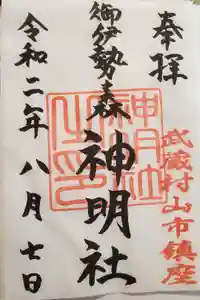 奉拝
武蔵村山市鎮座
御伊勢森
神明社
令和二年八月七日